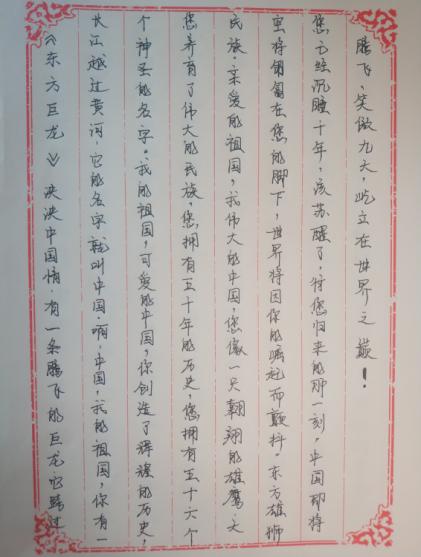 《东方巨龙》泱泱中国情·有一条腾飞的巨龙它跨过
长江越过黄河,它的名字就叫中国·啊,中国,我的祖国,你有一
个神圣的名字。我的祖国,可爱的中国,你创造了辉煌的历史,
您养育了伟大的民族,您拥有五千年的历史,您拥有五十六个
民族·亲爱的祖国,我伟大的中国,您像一只翱翔的雄鹰·
将匍匐在您的脚下,世界将因你的崛起而颤抖。东方雄狮
您已经沉睡千年,该苏醒了,待您归来的那一刻,中国即将
腾飞,笑傲九天,屹立在世界之巅!